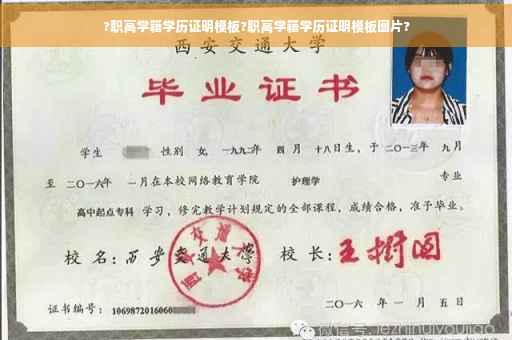 ?职高学籍学历证明模板?职高学籍学历证明模板图片?
西安交通大学
毕业证书
学生 性别 女, 一九九二年 四月 十八日生, 于二〇一三年 九月
至 二〇一六年 一月在本校网络教育学院 护理学 专业
高中起点专科 学习, 修完教学计划规定的全部课程, 成绩合格, 准予毕业。
校 名: 西安交通大学 校 长: 王树国
证书编号: 1069872016060
二〇一六年一月五日
微信号: jezhinuiyoujiao